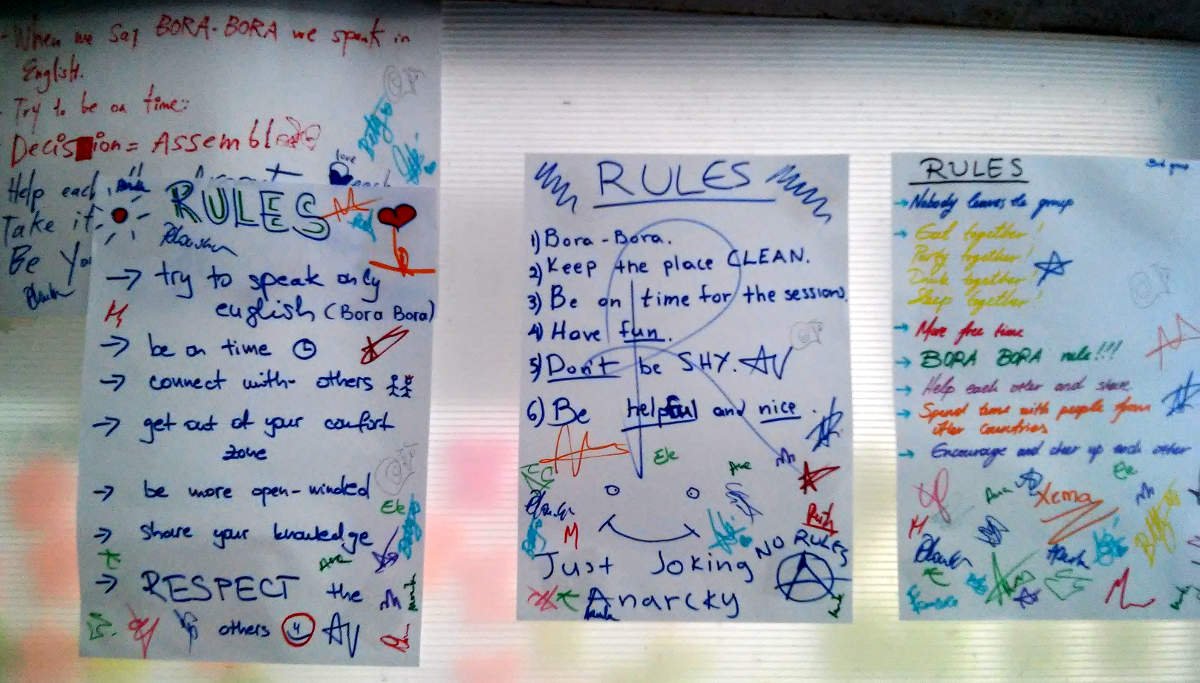 - When we say BORA-BORA we speak in
English.
- Try to be on time:
Decision = Assembl
Help each
love
Take it
Be Yo
RULES
→ try to speak only
english (Bora Bora)
→ be on time
→ connect with others
→ get out of your comfort
zone
→ be more open-minded
Ele
→ share your knowledge
Ane
→ RESPECT the
others
RULES
1) Bora-Bora.
2) Keep the place CLEAN.
3) Be on time for the sessions.
4) Have fun.
5) Don't be SHY.
6) Be helpful and nice.
Ele
Ane
M
Ruth
Just Joking
NO RULES
A
Anarcky
RULES
→ Nobody leaves the group
→ Eat together!
Party together!
Drink together!
Sleep together!
→ More free time
→ BORA BORA rule!!!
→ Help each other and share
→ Spend time with people from
other countries
→ Encourage and cheer up each other
Ele
Ane
Xema
M